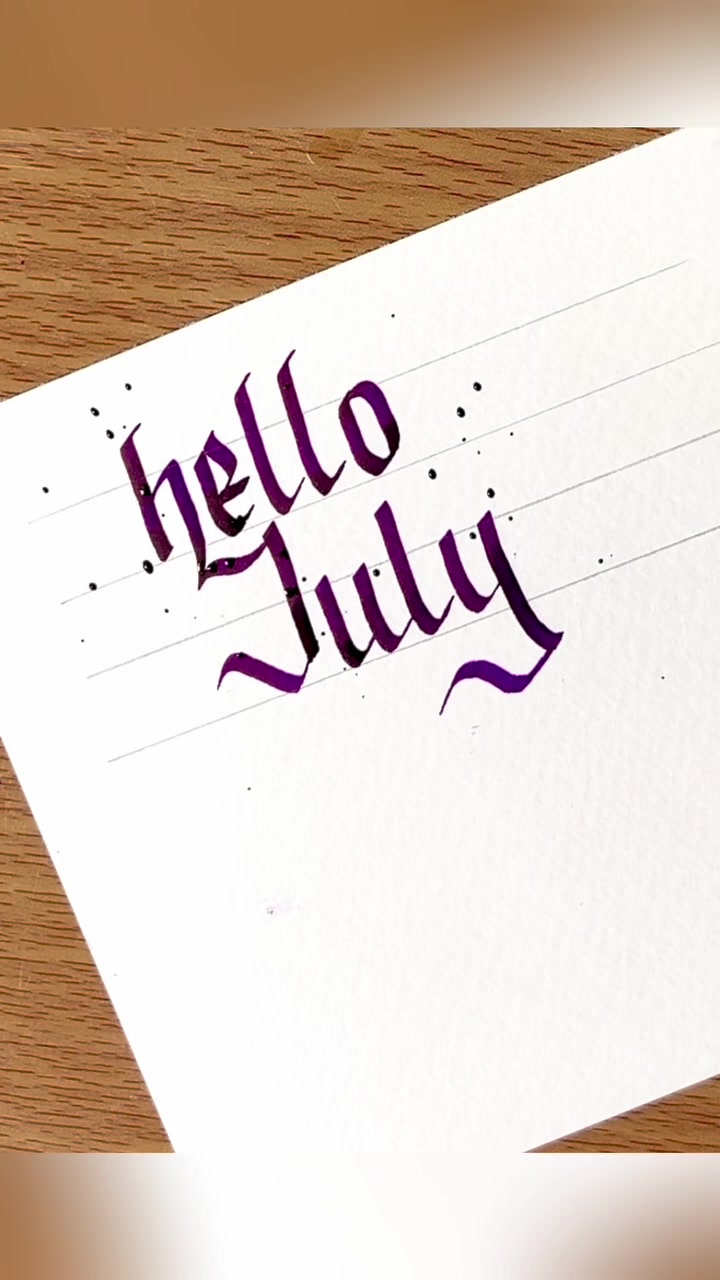 hello
July